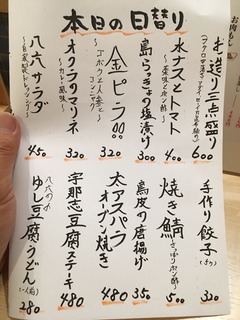 本日の日替り
お造り三点盛り
600
水ナスとトマト
400
島らっきょの塩漬け
300
金ピラ!!
〜ゴボウと人参とコンニャク〜
320
オクラのマリネ
〜カレー風味〜
320
八六サラダ
450
手作り餃子(5ケ)
320
焼き鯖
〜さっぱりポン酢〜
500
鳥皮の唐揚げ
350
太アスパラ
オーブン焼き
480
宇那志豆腐ステーキ
480
八六の
ゆし豆腐うどん
280